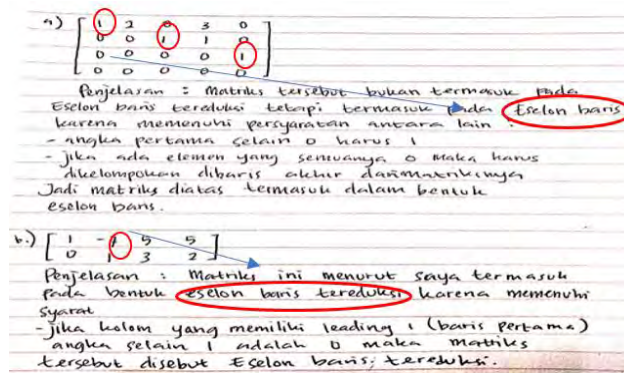 a) [ 1 2 0 3 0
0 0 1 1 0
0 0 0 0 1
0 0 0 0 0 ]
Penjelasan : Matriks tersebut bukan termasuk pada
Eselon baris tereduksi tetapi termasuk pada Eselon baris
karena memenuhi persyaratan antara lain :
- angka pertama selain 0 harus 1
- jika ada elemen yang semuanya 0 maka harus
dikelompokan dibaris akhir darimatriknya
Jadi matriks diatas termasuk dalam bentuk
eselon baris.
b.) [ 1 -1 5 5
0 1 3 2 ]
Penjelasan : Matriks ini menurut saya termasuk
pada bentuk eselon baris tereduksi karena memenuhi
syarat
- jika kolom yang memiliki leading 1 (baris pertama)
angka selain 1 adalah 0 maka matriks
tersebut disebut Eselon baris tereduksi.